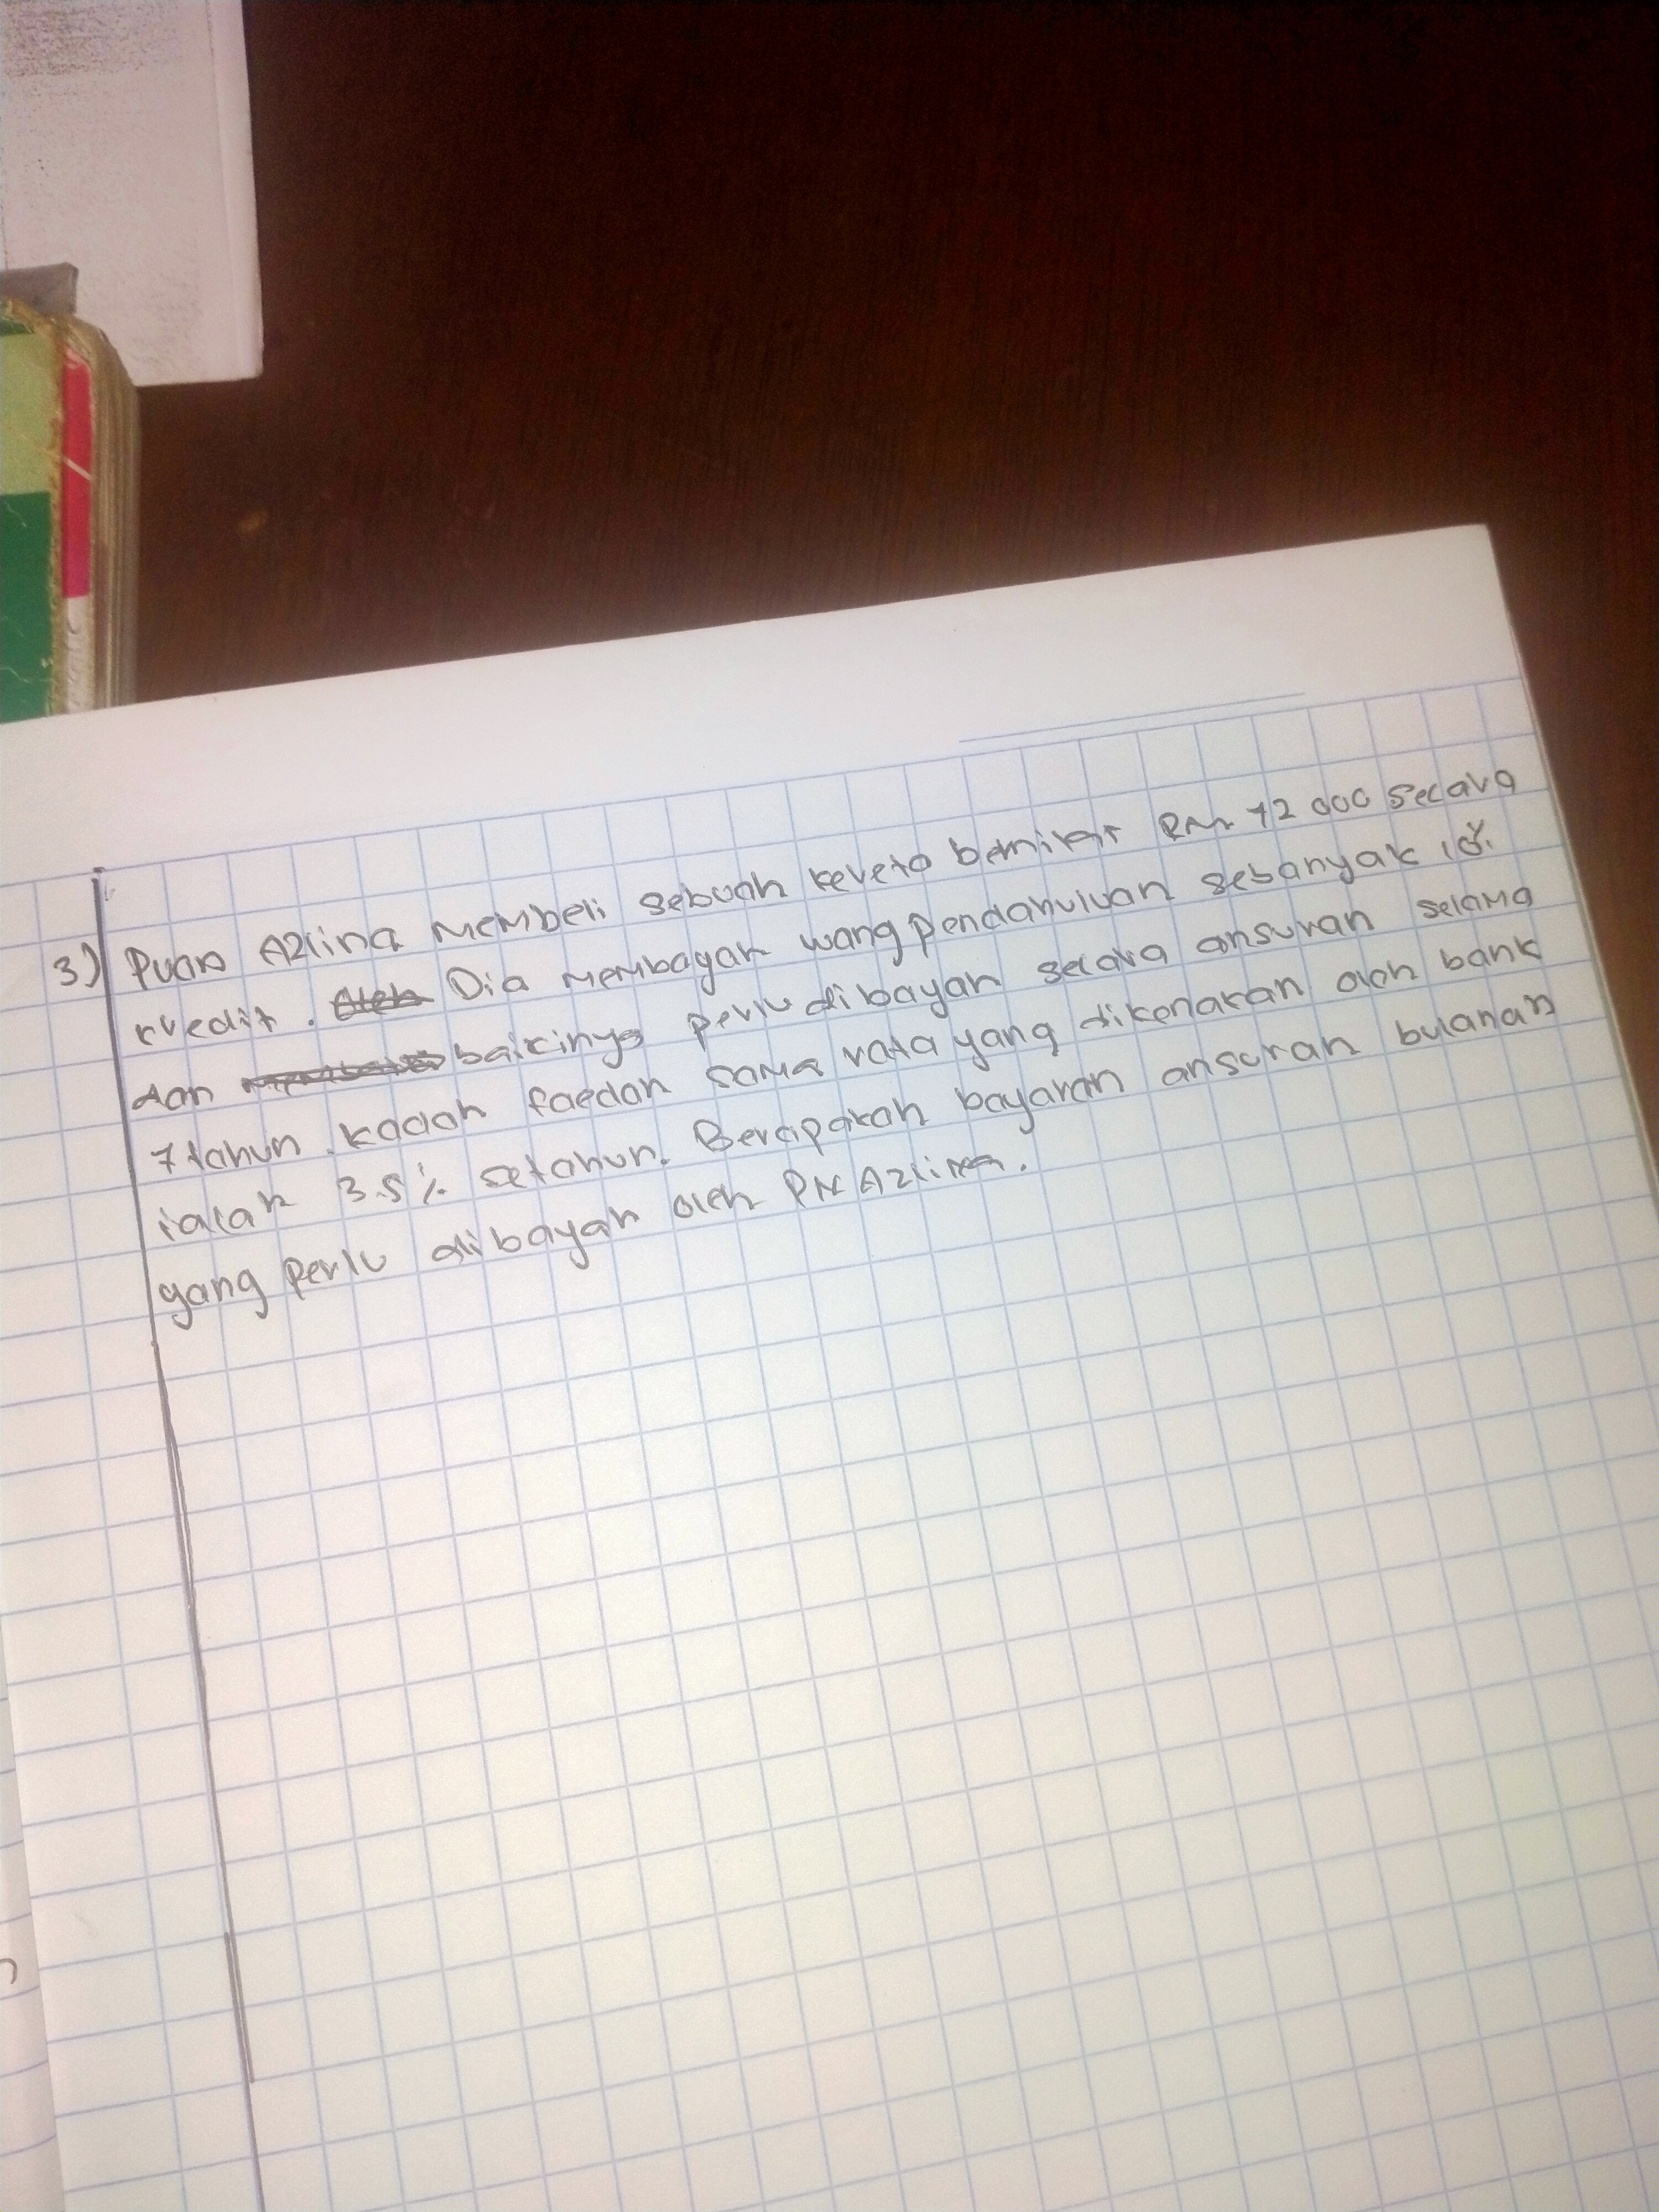 3) Puan Azlina membeli sebuah kereta bernilai RM 72 000 secara
kredit. Dia membayar wang pendahuluan sebanyak 10%
dan bakinya perlu dibayar secara ansuran selama
7 tahun. kadar faedah sama rata yang dikenakan oleh bank
ialah 3.5% setahun. Berapakah bayaran ansuran bulanan
yang perlu dibayar oleh PN Azlina.